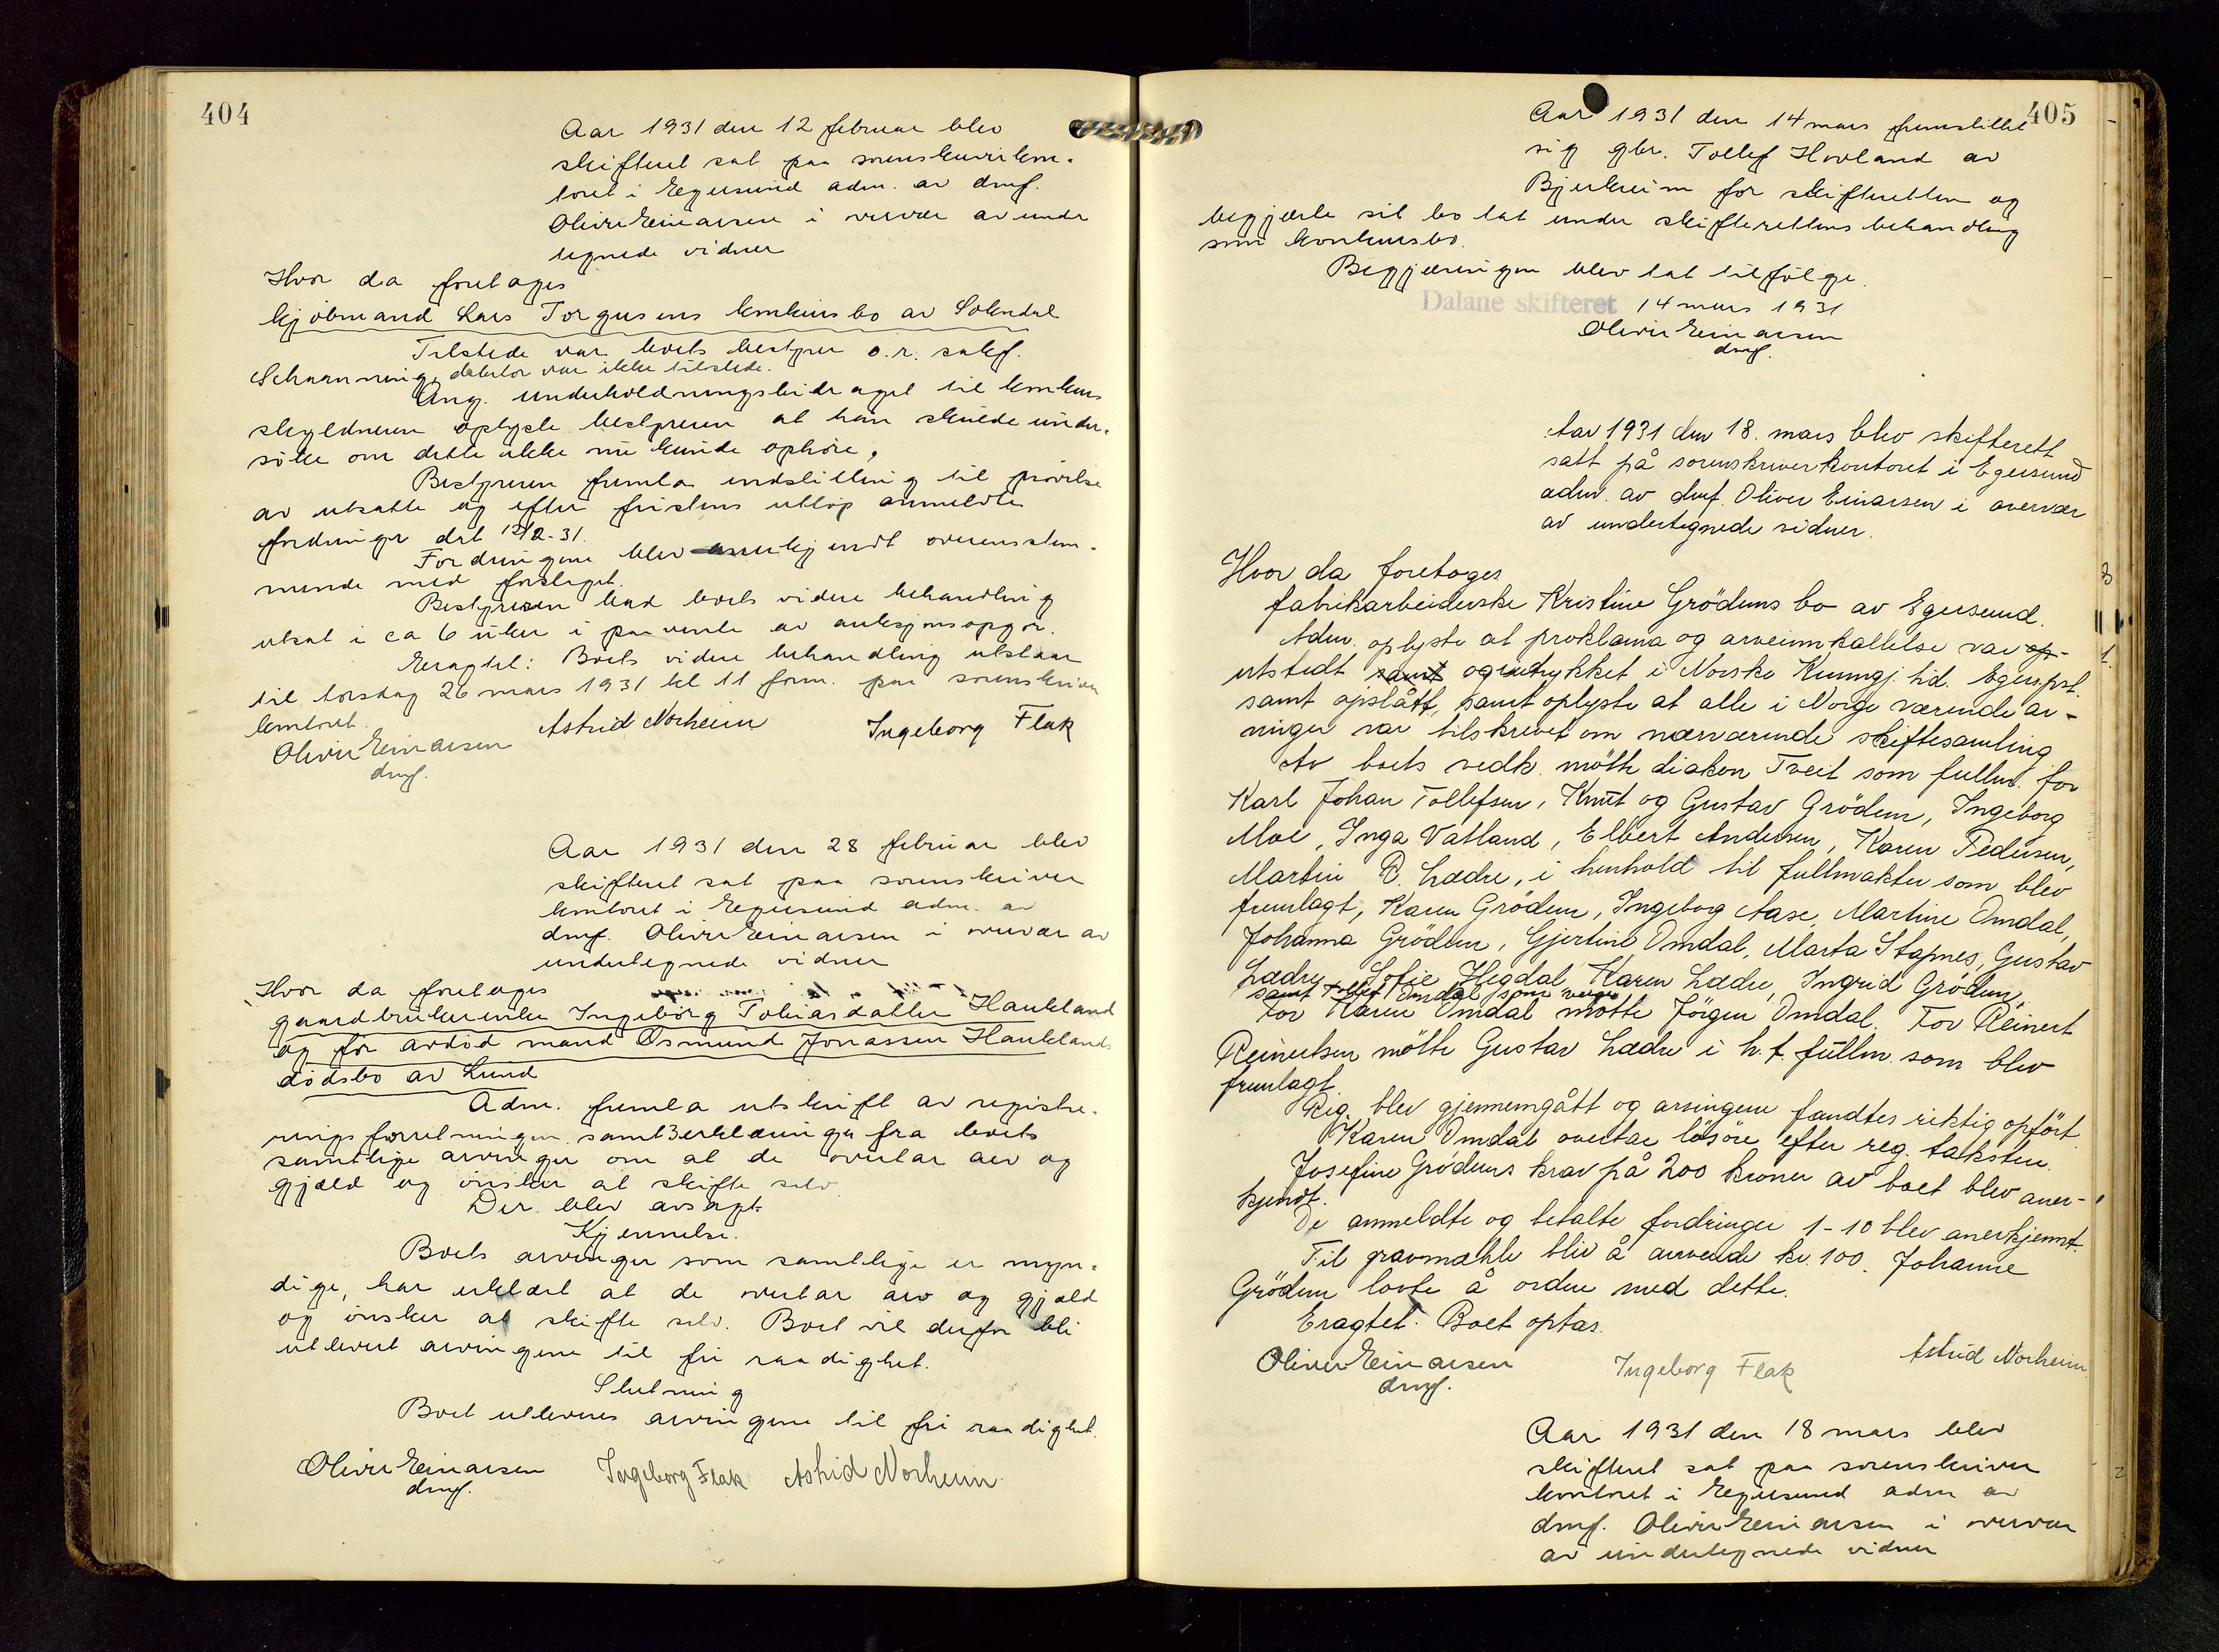 404
Aar 1931 den 12 februar blev
skifteret sat paa sorenskriverkon-
toret i Egersund adm. av dmf.
Oliver Einarsen i overvær av under
tegnede vidner
Hvor da foretages
kjøbmand Lars Torgersens konkursbo av Sokndal
Tilstede var boets bestyrer o.r. sakf.
Schanning, debitor var ikke tilstede.
Ang. underholdningsbidraget til konkurs
skyldneren oplyste bestyreren at han skulde under-
søke om dette ikke nu kunde ophøre.
Bestyreren fremla indstilling til prøvelse
av utsatte og efter fristens utløp anmeldte
fordringer dat 12/2-31.
Fordringene blev anerkjendt overensstem-
mende med forslaget.
Bestyreren bad boets videre behandling
utsat i ca 6 uker i paavente av auksjonsopgjør.
Eragtet: Boets videre behandling utstaar
til torsdag 26 mars 1931 kl 11 form. paa sorenskriver
kontoret.
Oliver Einarsen Astrid Norheim Ingeborg Flak
dmf.
Aar 1931 den 28 februar blev
skifteret sat paa sorenskriver
kontoret i Egersund adm. av
dmf. Oliver Einarsen i overvær av
undertegnede vidner
Hvor da foretages
gaardbrukerenke Ingeborg Tobiasdatter Haukland
og før avdød mand Osmund Jonassen Hauklands
dødsbo av Lund
Adm. fremla utskrift av registre-
ringsforretningen samt 3 erklæringer fra boets
samtlige arvinger om at de overtar arv og
gjæld og ønsker at skifte selv.
Der blev avsagt
Kjennelse.
Boets arvinger som samtlige er myn-
dige, har erklært at de overtar arv og gjæld
og ønsker at skifte selv. Boet vil derfor bli
utlevert arvingene til fri raadighet.
Slutning
Boet utleveres arvingene til fri raadighet.
Oliver Einarsen Ingeborg Flak Astrid Norheim
dmf.
405
Aar 1931 den 14 mars fremstillet
sig gbr. Tollef Hovland av
Bjerkreim for skifteretten og
begjærte sit bo tat under skifterettens behandling
som konkursbo.
Begjæringen blev tat tilfølge.
Dalane skifteret 14 mars 1931
Oliver Einarsen
dmf.
Aar 1931 den 18. mars blev skifterett
satt på sorenskriverkontoret i Egersund
adm. av dmf. Oliver Einarsen i overvær
av undertegnede vidner.
Hvor da foretages
fabrikarbeiderske Kristine Grödems bo av Egersund.
Adm. oplyste at proklama og arveinnkallelse var op-
utstedt samt og intrykket i Norske Kunngj. tid. Egers.pst.
samt opslått, samt oplyste at alle i Norge værende ar-
vinger var tilskrevet om nærværende skiftesamling
Av boets vedk. mötte diakon Tveit som fullm. for
Karl Johan Tollefsen, Knut og Gustav Grödem, Ingeborg
Moe, Inga Vatland, Elbert Andersen, Karen Pedersen,
Martin P. Lædre, i henhold til fullmakter som blev
fremlagt, Karen Grödem, Ingeborg Aase, Martine Omdal,
Johanna Grödem, Gjertine Omdal, Marta Stapnes, Gustav
Lædre, Sofie Hegdal, Karen Lædre, Ingrid Grödem,
samt Tollef Omdal som verge
For Karen Omdal mötte Jörgen Omdal. For Reinert
Reinertsen mötte Gustav Lædre i h.t. fullm. som blev
fremlagt.
Reg. blev gjennemgått og arvingene fandtes riktig opfört.
Karen Omdal overtar lösöre efter reg. taksten.
Josefine Grödems krav på 200 kroner av boet blev aner-
kjendt.
De anmeldte og betalte fordringer 1-10 blev anerkjennt.
Til gravmæhle blir å anvende kr. 100. Johanne
Grödem lovte å ordne med dette.
Eragtet: Boet optas.
Oliver Einarsen Ingeborg Flak Astrid Norheim
dmf.
Aar 1931 den 18 mars blev
skifteret sat paa sorenskriver
kontoret i Egersund adm av
dmf. Oliver Einarsen i overvær
av undertegnede vidner